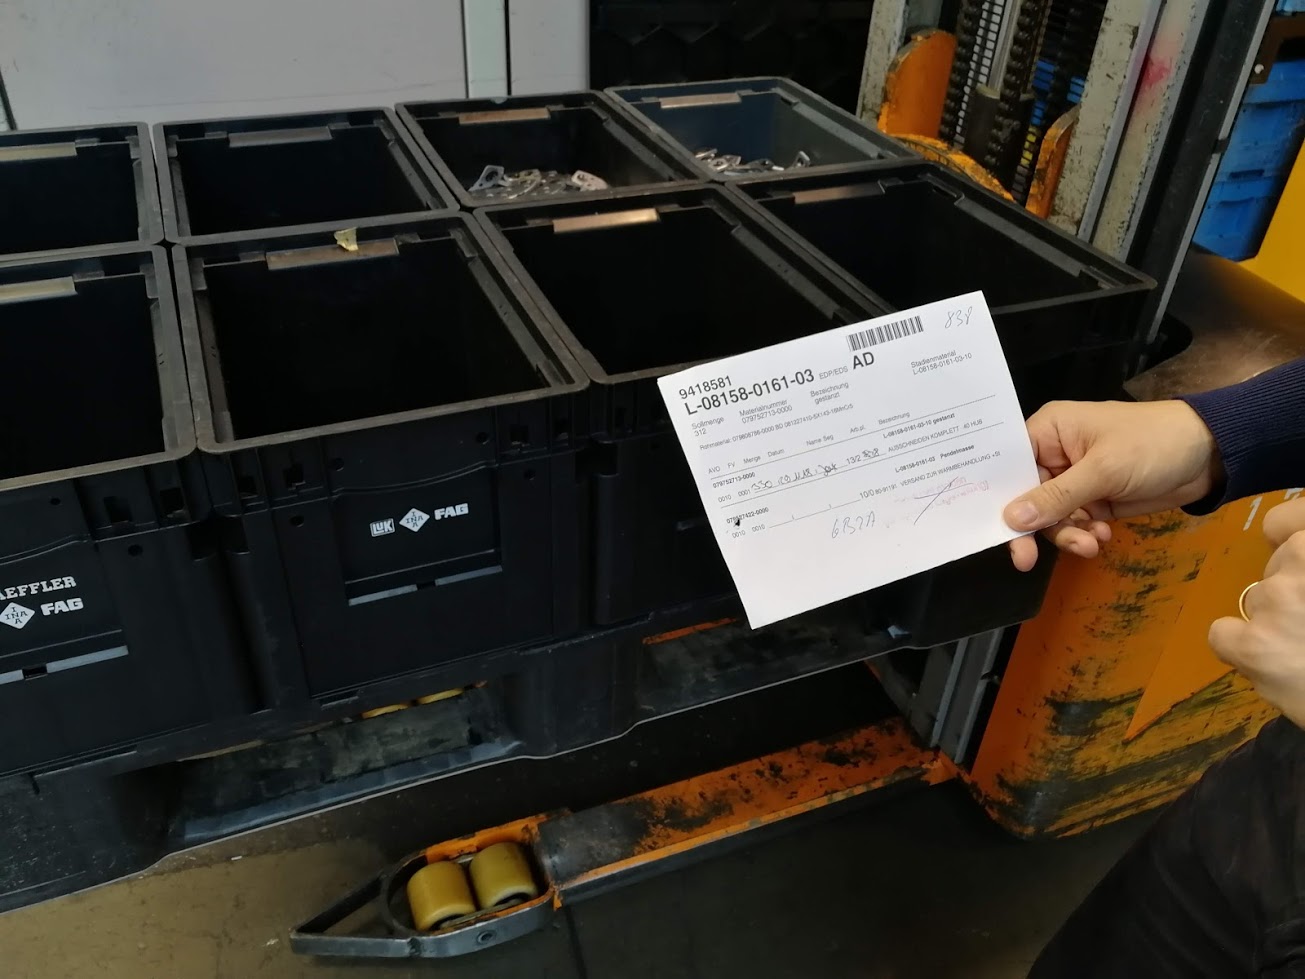 838
9418581
L-08158-0161-03 EDP/EDS AD
Sollmenge
312
Materialnummer
079752713-0000
Bezeichnung
gestanzt
Stadienmaterial
L-08158-0161-03-10
Rohmaterial: 079608786-0000 BD
AVO FV Menge Datum: Name Seg. Arb.pl. Bezeichnung
079752713-0000 L-08158-0161-03-10 gestanzt
0010 0001 132 AUSSCHNEIDEN KOMPLETT 40 HUB
L-08158-0161-03 Pendelmasse
0010 0010 10/0 80-91191 VERSAND ZUR WARMBEHANDLUNG +SI
6B2A
LUK INA FAG
AEFFLER
INA FAG
1